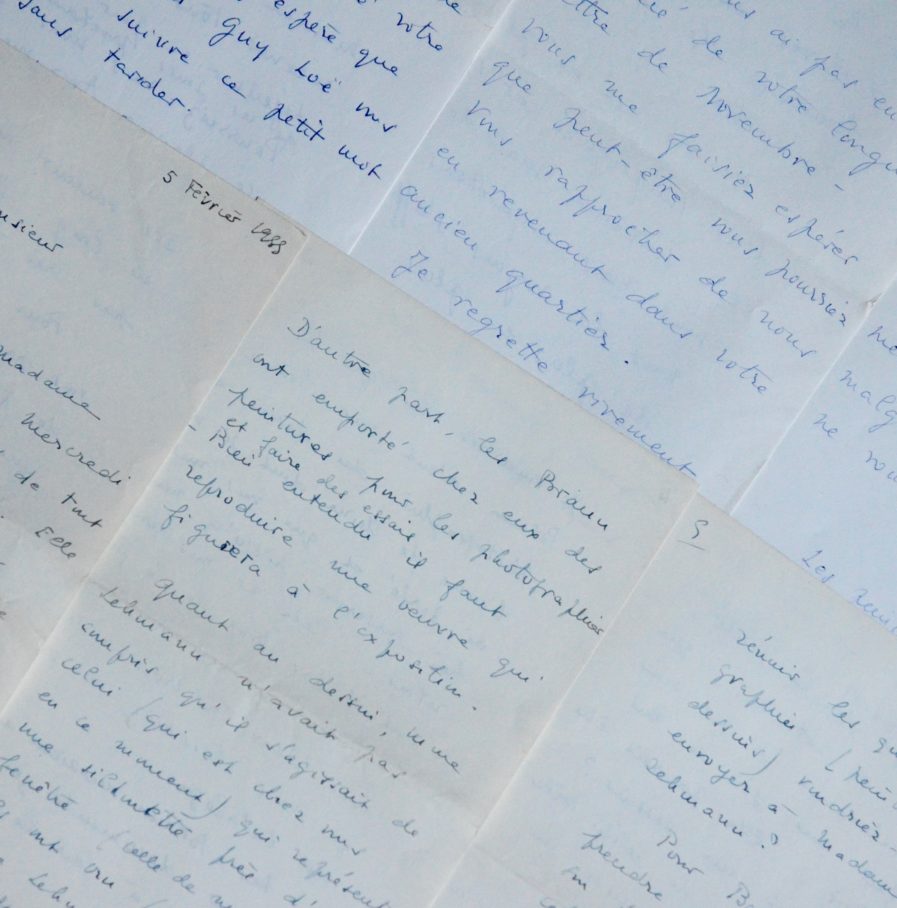 votre
espère que
Guy Loë ms
suivre ce petit mot
sans tarder.
ai pas eu
de votre longue
lettre de Novembre -
vous me faisiez espérer
que peut-être vous pourriez
vous rapprocher de nous
en revenant dans votre
ancien quartier.
Je regrette vivement
malg
ne vous
Les
5 Février 1988
Madame
Mercredi
de tout
Elle
D'autre part, les Boránn
ont emporté chez eux des
peintures pour les photographier
et faire des essais
- Bien entendu il faut
reproduire une oeuvre qui
figurera à l'exposition.
Quant au dessin, mme
Lehmann n'avait pas
compris qu'il s'agissait de
celui (qui est chez nous
en ce moment) qui représent
une silhouette près d'
fenêtre (celle de
ont cru
Lehm
3
réunir les qu
graphies (pein
dessins) voudriez-
envoyer à Madam
Lehmann?
Pour
prendre